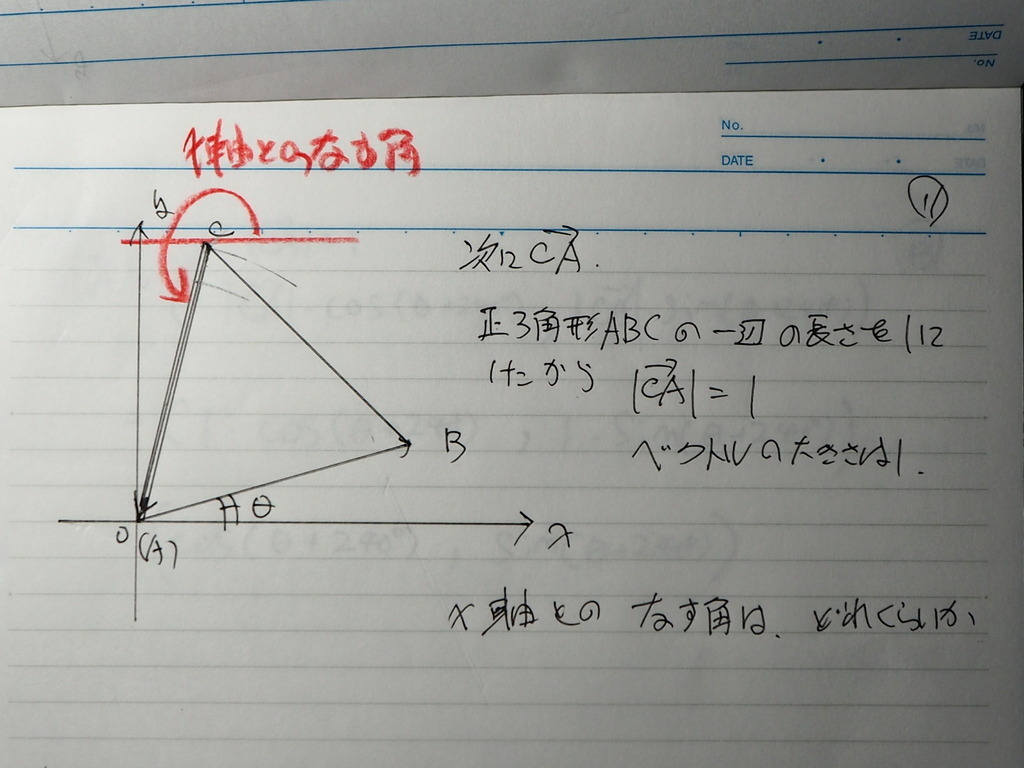 DATE
No.
No.
DATE
x軸とのなす角
①
y
C
次に CA.
正3角形ABCの一辺の長さを1に
したから |CA| = 1
ベクトルの大きさは1.
B
θ
O
(A)
x
x軸とのなす角は、どれくらいか